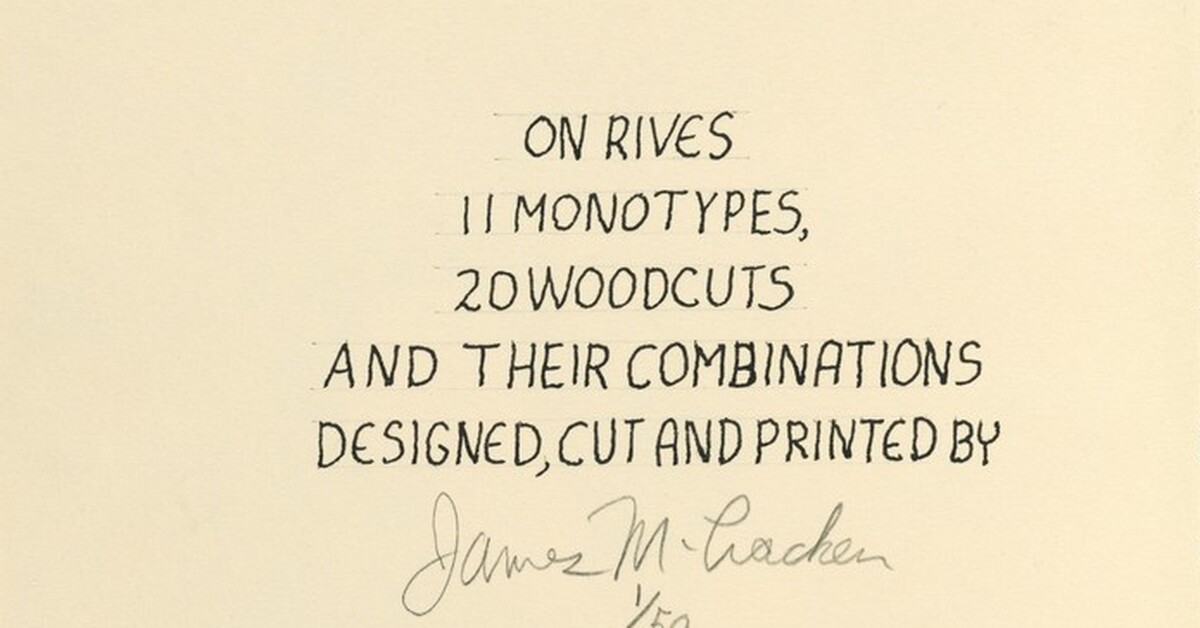 ON RIVES
11 MONOTYPES,
20 WOODCUTS
AND THEIR COMBINATIONS
DESIGNED, CUT AND PRINTED BY
James McCracken
1/50